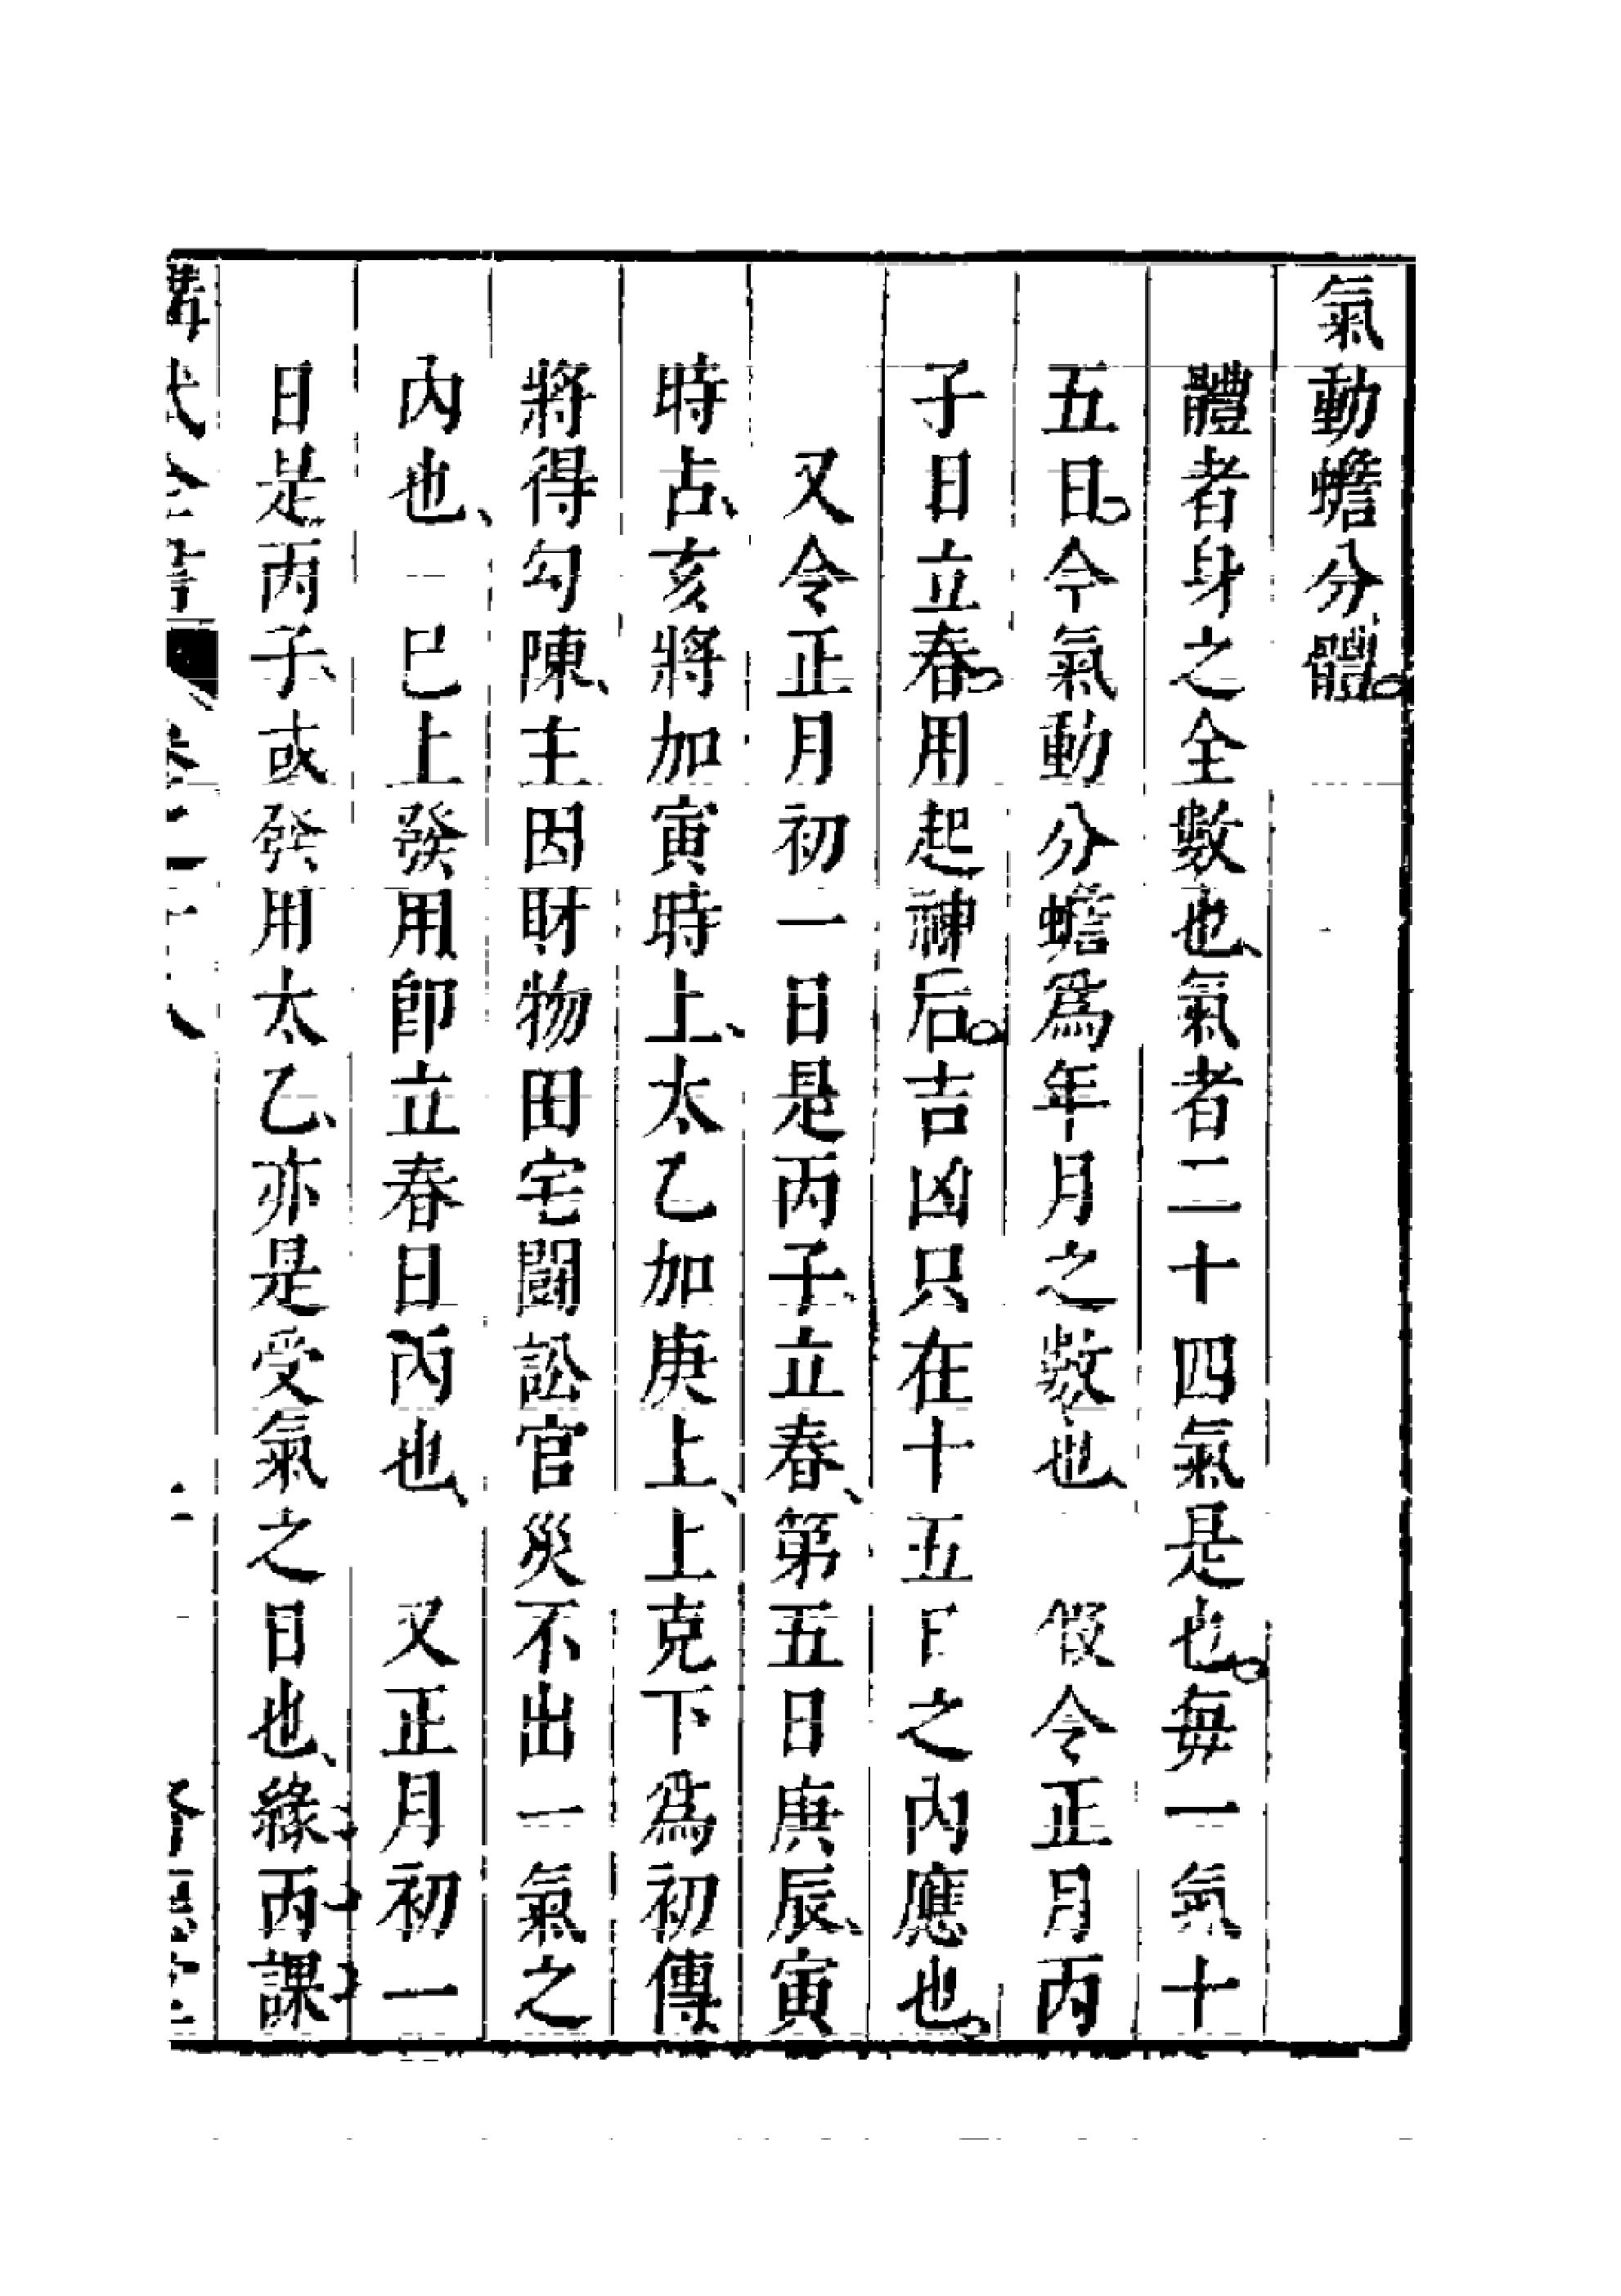 氣動蟾分體。
體者身之全數也、氣者二十四氣是也。每一氣十
五日。今氣動分蟾爲年月之數也、　假令正月丙
子日立春。用起神后。吉凶只在十五日之內應也。
又令正月初一日是丙子、立春、第五日庚辰、寅
時占、亥將加寅時上、太乙加庚上、上克下爲初傳
將得勾陳、主因財物田宅鬪訟官災不出一氣之
內也、　巳上發用即立春日丙也、　又正月初一
日是丙子、或發用太乙、亦是受氣之日也、緣丙課